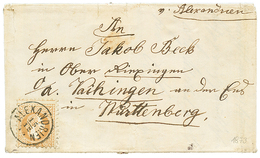 v. Alexandrien
An
Herrn Jakob Beck
in Ober Riexingen
Vaihingen an der Enz
in Württemberg.
ALEXAND